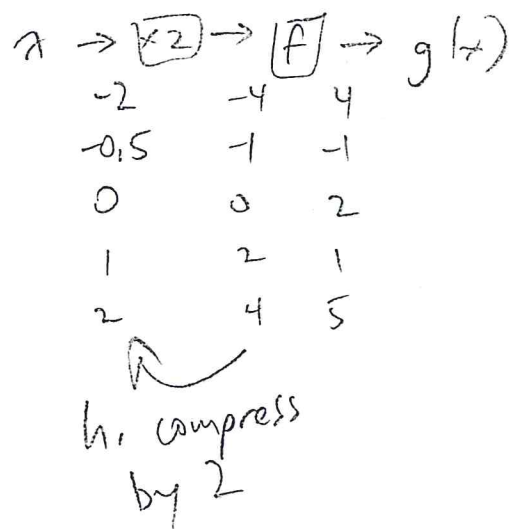 x → ×2 → f → g(x)
-2 -4 4
-0.5 -1 -1
0 0 2
1 2 1
2 4 5
h. compress
by 2